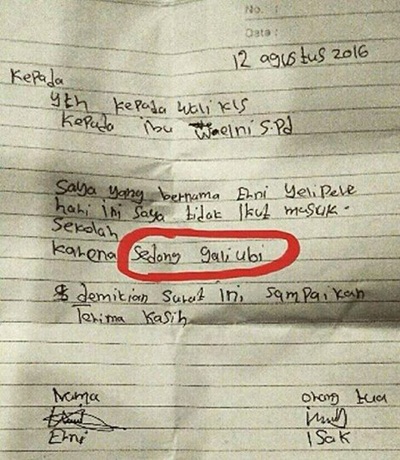 No. :
Date :
12 agustus 2016
Kepada
Yth kepada Wali Kls
Kepada ibu Waelni S.Pd
Saya yang bernama Erni Yelipele
hari ini saya tidak ikut masuk.
Sekolah
karena sedang gali ubi
demikian surat ini, sampaikan
Terima kasih
Nama
orang tua
Erni
ISak